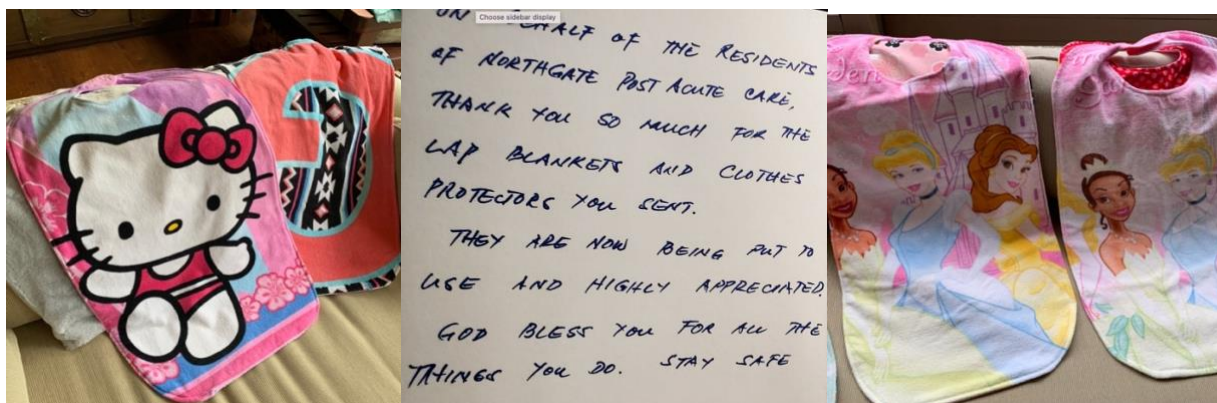 Choose sidebar display
ON BEHALF OF THE RESIDENTS
OF NORTHGATE POST ACUTE CARE,
THANK YOU SO MUCH FOR THE
LAP BLANKETS AND CLOTHES
PROTECTORS YOU SENT.
THEY ARE NOW BEING PUT TO
USE AND HIGHLY APPRECIATED.
GOD BLESS YOU FOR ALL THE
THINGS YOU DO. STAY SAFE